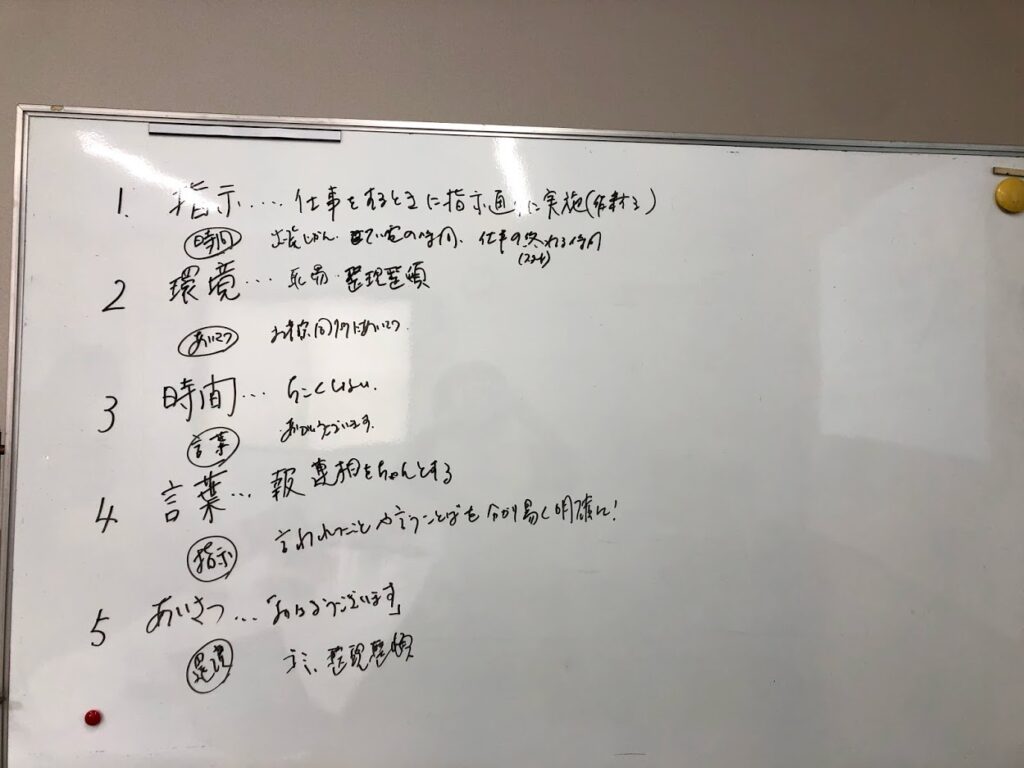 1. 指示…. 仕事をするときに指示通りに実施(作業する)
時間 出発じかん. の時間. 仕事の終わる時間
2 環境… 整理整頓
あいさつ お客様 同行 にあいさつ.
3 時間… ちこくしない.
言葉 ありがとうございます.
4 言葉… 報連相をちゃんとする
指示 言われたことや言うことばを分かり易く明確に!
5 あいさつ…「おはようございます」
環境 ゴミ、整理整頓